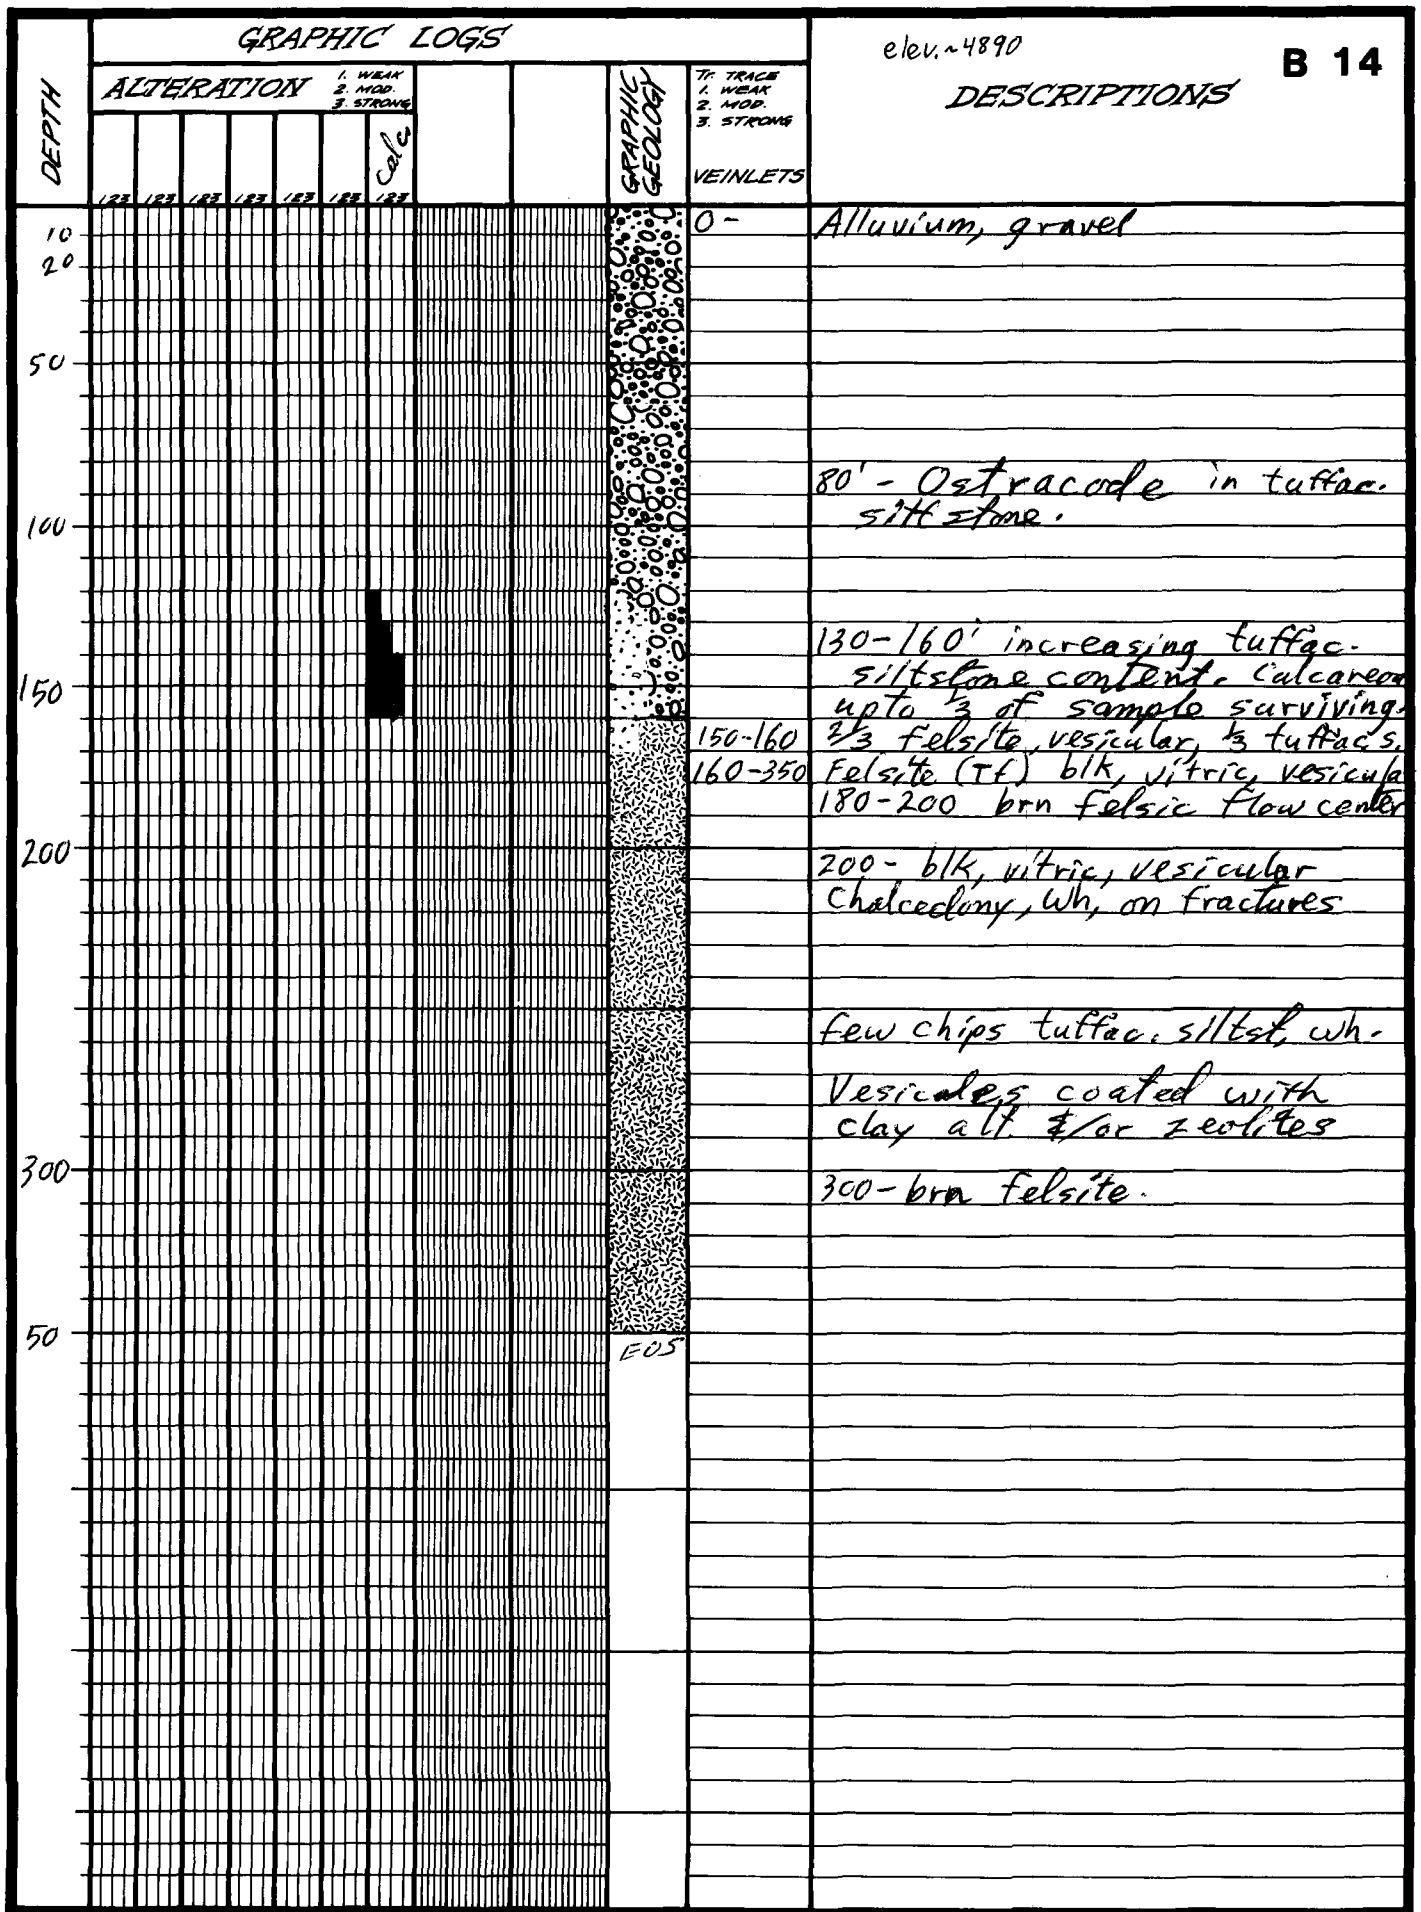 GRAPHIC LOGS
elev. ~4890
B 14
DEPTH
ALTERATION
1. WEAK
2. MOD.
3. STRONG
GRAPHIC
GEOLOGY
Tr. TRACE
1. WEAK
2. MOD.
3. STRONG
DESCRIPTIONS
Calc
VEINLETS
123 123 123 123 123 123 123
0- Alluvium, gravel
10
20
50
80' - Ostracode in tuffac.
siltstone.
100
130-160' increasing tuffac.
siltstone content. Calcareou
150
upto 1/3 of sample surviving.
150-160 2/3 felsite, vesicular, 1/3 tuffac s.
160-350 Felsite (Tf) blk, vitric, vesicula
180-200 brn felsic flow center
200
200- blk, vitric, vesicular
Chalcedony, wh, on fractures
few chips tuffac. siltst, wh.
Vesicules coated with
clay alt. &/or zeolites
300
300- brn felsite.
50
EOS